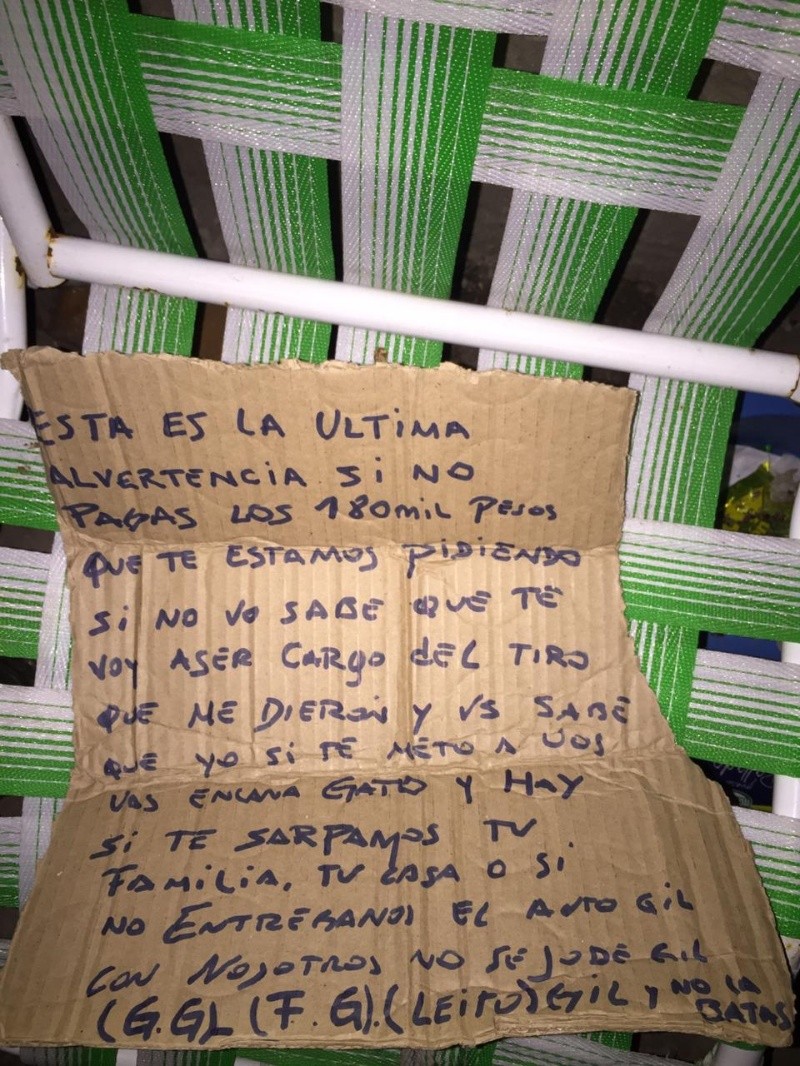 ESTA ES LA ULTIMA
ALVERTENCIA Si NO
PAGAS LOS 180MiL Pesos
QUE TE ESTAMOS PiDiENDO
Si NO VO SABE QUE TE
VOY ASER CARgo dEL TIRO
QUE ME DIERON Y VS SABE
QUE YO Si TE METO A VOS
VAS ENCANA GATO Y HAY
Si TE SARPAMOS TU
FAMiLiA, TU CASA O Si
NO ENTREGANOS EL AUTO GiL
CON NOSOTROS NO SE JODE GiL
(G.G) (F.G).(LEITO) GiL Y NO LA
BATAS